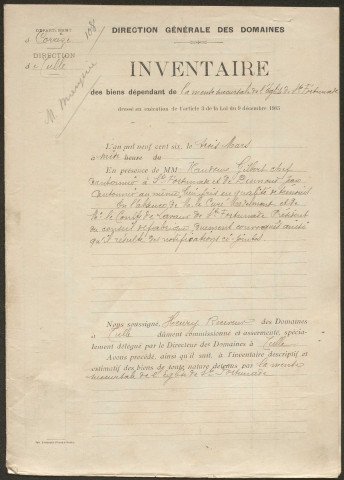 DÉPARTEMENT
de Corrèze
DIRECTION
de Tulle
108
DIRECTION GÉNÉRALE DES DOMAINES
INVENTAIRE
des biens dépendant de la mense succursale de l'Eglise de Ste Fortunade
dressé en exécution de l'article 3 de la Loi du 9 décembre 1905
L'an mil neuf cent six, le trois Mars
à heures du
En présence de MM. Gilbert chef
cantonnier à Ste Fortunade et de Jean
cantonnier au même lieu pris en qualité de témoins
en l'absence de M. le Curé et de
M. le Comte de de Ste Fortunade Président
du conseil de fabrique dûment convoqués ainsi
qu'il résulte des notifications ci-jointes.
Nous soussigné, Receveur des Domaines
à Tulle dûment commissionné et assermenté, spécia-
lement délégué par le Directeur des Domaines à Tulle
Avons procédé, ainsi qu'il suit, à l'inventaire descriptif et
estimatif des biens de toute nature détenus par la mense
succursale de l'église de Ste Fortunade